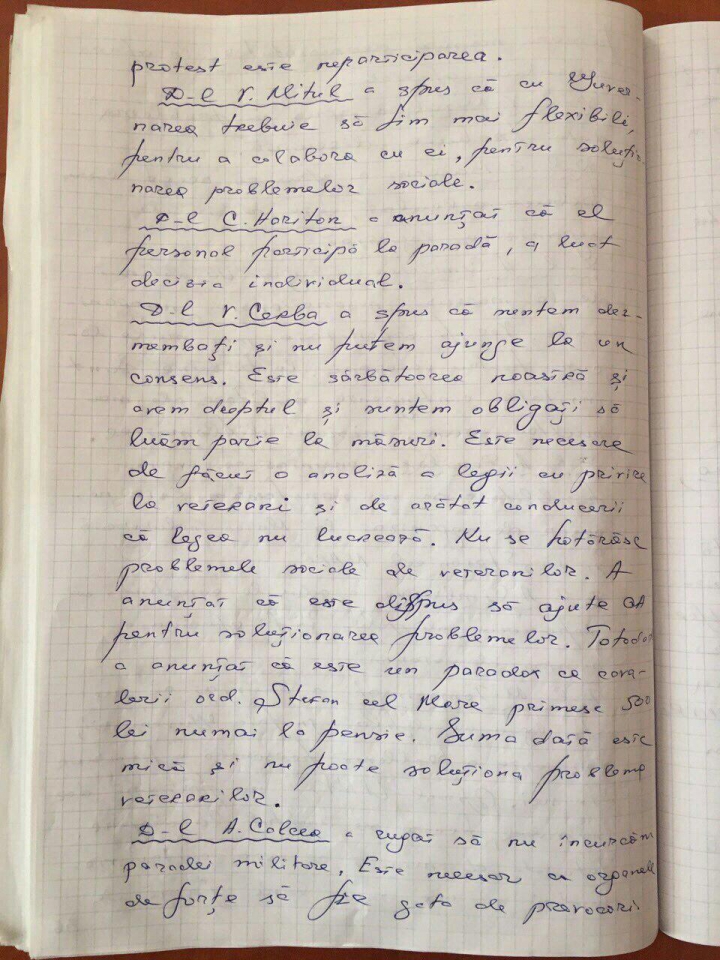 protest este neparticiparea.
D-l V. Mitul a spus că cu Guver-
narea trebuie să fim mai flexibili,
pentru a colabora cu ei, pentru soluțio-
narea problemelor sociale.
D-l C. Hariton a anunțat că el
personal participă la paradă, a luat
decizia individual.
D-l V. Cerba a spus că suntem dez-
membați și nu putem ajunge la un
consens. Este sărbătoarea noastră și
avem dreptul și suntem obligați să
luăm parte la măsuri. Este necesare
de făcut o analiză a legii cu privire
la veterani și de arătat conducerii
că legea nu lucrează. Nu se hotărăsc
problemele sociale ale veteranilor. A
anunțat că este dispus să ajute OA
pentru soluționarea problemelor. Totodat
a anunțat că este un paradox ca cava-
lerii ord. Ștefan cel Mare primesc 500
lei numai la pensie. Suma dată este
mică și nu poate soluționa problema
veteranilor.
D-l A. Calcea a rugat să nu încurcăm
paradei militare. Este necesar ca organele
de forțe să fie gata de provocări.